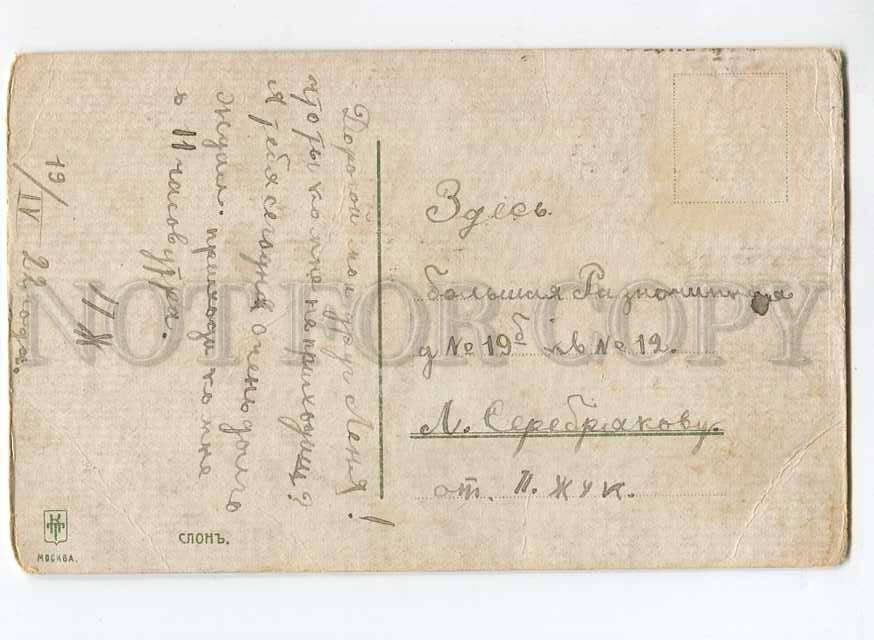 Дорогой мой друг Леня!
Что ты ко мне не приходишь?
Я тебя сегодня очень долго
ждал. приходи ко мне
в 11 часов утра.
П Ж
19/IV 22 года.
Здесь.
большая Разночинная
д № 19б кв № 12.
Л. Серебрякову.
от. П. Жук.
СЛОНЪ.
МОСКВА.
NOT FOR COPY